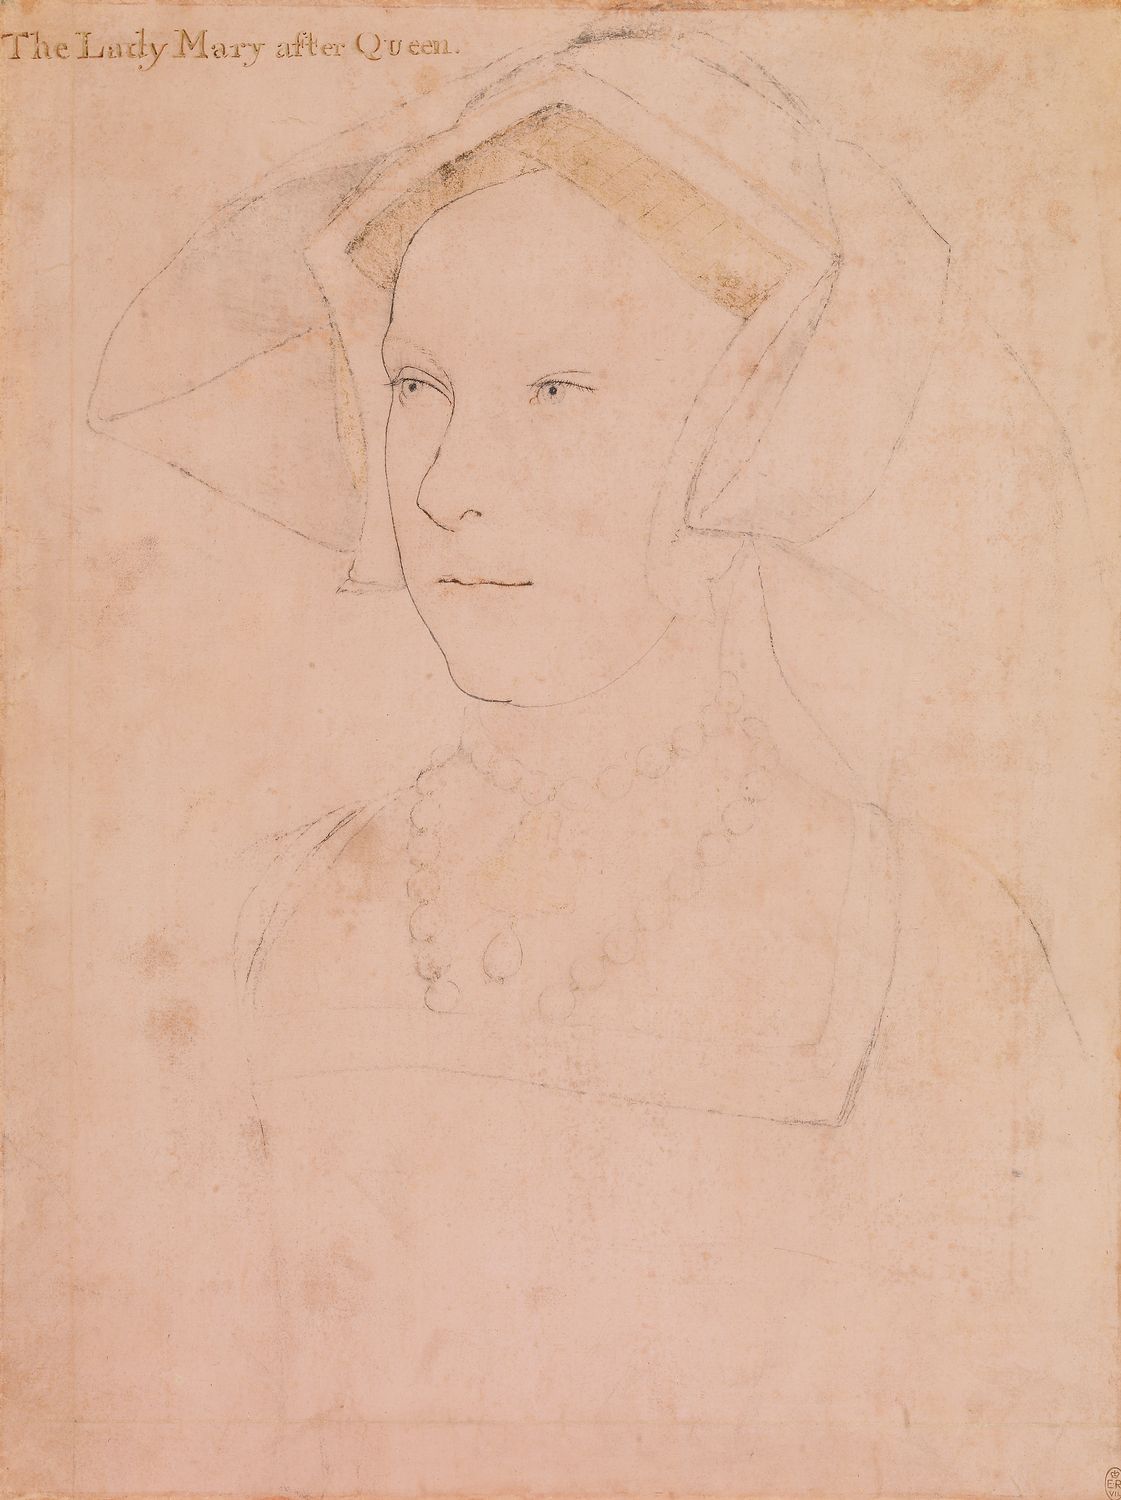 The Lady Mary after Queen.
ER
VII